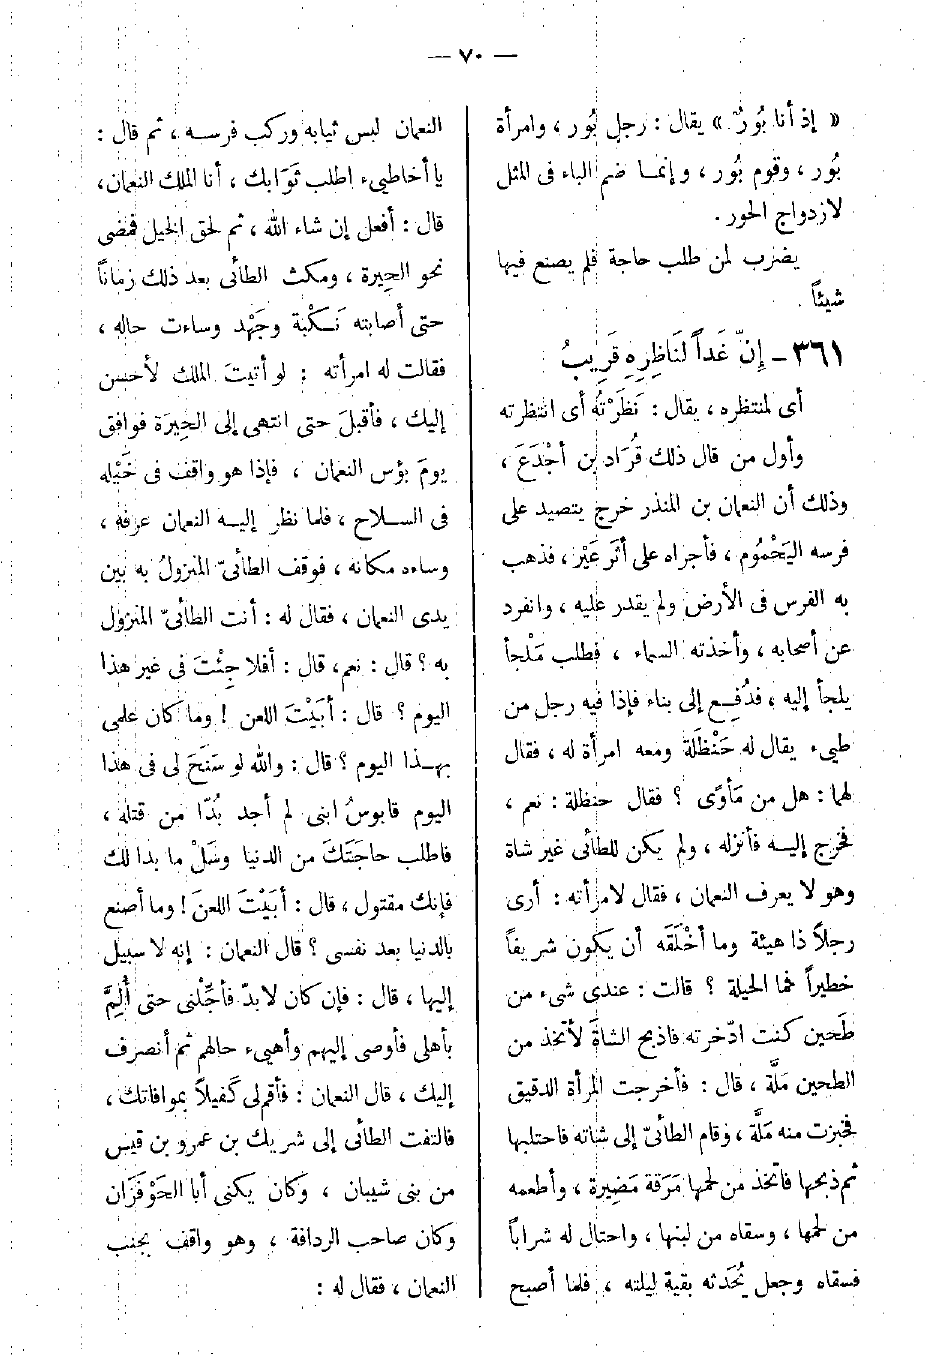 — ٧٠ —
« إذ أنا بُورٌ » يقال : رجل بُور ، وامرأة
بُور ، وقوم بُور ، وإنما ضم الباء فى المثل
لازدواج الحور .
يضرب لمن طلب حاجة فلم يصنع فيها
شيئاً .
٣٦١ – إِنّ غَداً لَنَاظِرِهِ قَرِيبُ
أى لمنتظره ، يقال : نَظَرْتُهُ أى انتظرته
وأول من قال ذلك قُرَاد بن أجْدَعَ ،
وذلك أن النعمان بن المنذر خرج يتصيد على
فرسه اليَحْمُوم ، فأجراه على أثَر عَيْر ، فذهب
به الفرس فى الأرض ولم يقدر عليه ، وانفرد
عن أصحابه ، وأخذته السماء ، فطلب مَلْجأ
يلجأ إليه ، فدُفِع إلى بناء فإذا فيه رجل من
طيىء يقال له حَنْظَلة ومعه امرأة له ، فقال
لهما : هل من مَأوًى ؟ فقال حنظلة : نعم ،
فخرج إليه فأنزله ، ولم يكن للطائى غير شاة
وهو لا يعرف النعمان ، فقال لامرأته : أرى
رجلاً ذا هيئة وما أخْلَقَه أن يكون شريفاً
خطيراً فما الحيلة ؟ قالت : عندى شىء من
طَحين كنت ادّخرته فاذبح الشاةَ لأتخذ من
الطحين مَلَّة ، قال : فأخرجت المرأة الدقيق
فخبزت منه مَلَّة ، وقام الطائىّ إلى شاته فاحتلبها
ثم ذبحها فاتخذ من لحمها مَرَقة مَضِيرة ، وأطعمه
من لحمها ، وسقاه من لبنها ، واحتال له شراباً
فسقاه وجعل يُحَدثه بقية ليلته ، فلما أصبح
النعمان لبس ثيابه وركب فرسه ، ثم قال :
يا أخاطيىء اطلب ثَوَابك ، أنا الملك النعمان،
قال : أفعل إن شاء الله ، ثم لحق الخيل فمضى
نحو الحِيرة ، ومكث الطائى بعد ذلك زماناً
حتى أصابته نَكْبة وجَهْد وساءت حاله ،
فقالت له امرأته : لو أتيتَ الملك لأحسن
إليك ، فأقبلَ حتى انتهى إلى الحِيرَة فوافق
يومَ بؤس النعمان ، فإذا هو واقف فى خَيْله
فى السلاح ، فلما نظر إليه النعمان عرفه ،
وساءه مكانه ، فوقف الطائىّ المنزولُ به بين
يدى النعمان ، فقال له : أنت الطائىّ المنزول
به ؟ قال : نعم، قال : أفلا جِئْتَ فى غير هذا
اليوم ؟ قال : أبَيْتَ اللعن ! وما كان علمى
بهذا اليوم ؟ قال : والله لو سَنَحَ لى فى هذا
اليوم قابوسُ ابنى لم أجد بُدّا من قتله ،
فاطلب حاجَتَكَ من الدنيا وسَلْ ما بدا لك
فإنك مقتول ، قال : أبَيْتَ اللعنَ ! وما أصنع
بالدنيا بعد نفسى ؟ قال النعمان : إنه لا سبيل
إليها ، قال : فإن كان لابدّ فأجِّلْنى حتى أُلِمَّ
بأهلى فأوصى إليهم وأهيىء حالهم ثم أنصرف
إليك ، قال النعمان : فأقم لى كَفيلاً بموافاتك ،
فالتفت الطائى إلى شريك بن عمرو بن قيس
من بنى شيبان ، وكان يكنى أبا الحَوْفَزَان
وكان صاحب الردافة ، وهو واقف بجنب
النعمان ، فقال له :